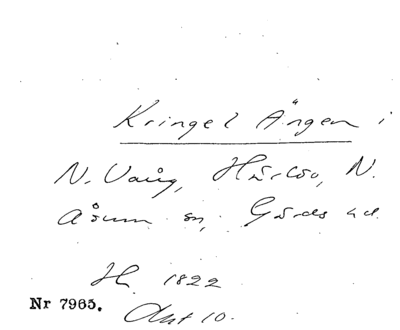 Kringel Ängen i
N. Vång, Härlöv, N.
Åsum sn, Gärds hd.
H. 1822
Nr 7965. Akt 10.